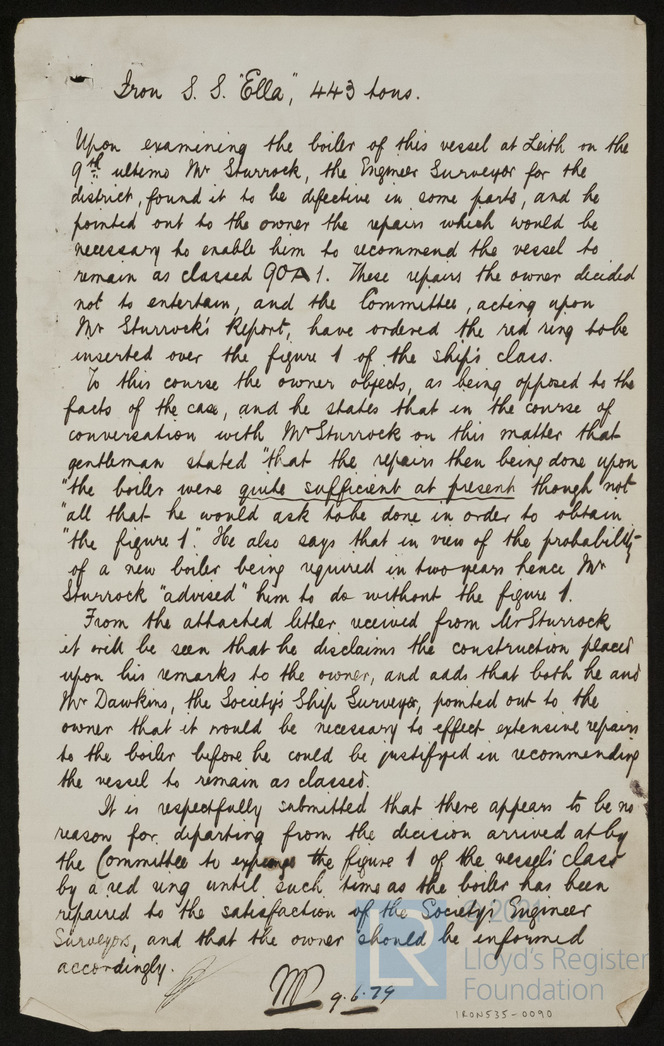 Iron S. S. "Ella", 443 tons.
Upon examining the boiler of this vessel at Leith on the
9th ultimo Mr Sturrock, the Engineer Surveyor for the
district, found it to be defective in some parts, and he
pointed out to the owner the repairs which would be
necessary to enable him to recommend the vessel to
remain as classed 90A1. These repairs the owner decided
not to entertain, and the Committee, acting upon
Mr Sturrock's Report, have ordered the red ring to be
inserted over the figure 1 of the ship's class.
To this course the owner objects, as being opposed to the
facts of the case, and he states that in the course of
conversation with Mr Sturrock on this matter that
gentleman stated "that the repairs then being done upon
"the boiler were quite sufficient at present though not
"all that he would ask to be done in order to obtain
"the figure 1". He also says that in view of the probability
of a new boiler being required in two years hence Mr
Sturrock "advised" him to do without the figure 1.
From the attached letter received from Mr Sturrock
it will be seen that he disclaims the construction placed
upon his remarks to the owner, and adds that both he and
Mr Dawkins, the Society's Ship Surveyor, pointed out to the
owner that it would be necessary to effect extensive repairs
to the boiler before he could be justified in recommending
the vessel to remain as classed.
It is respectfully submitted that there appears to be no
reason for departing from the decision arrived at by
the Committee to expunge the figure 1 of the vessel's class
by a red ring until such time as the boiler has been
repaired to the satisfaction of the Society's Engineer
Surveyors, and that the owner should be informed
accordingly.
9.6.79
LR
© 2021
Lloyd's Register
Foundation
IRON535-0090